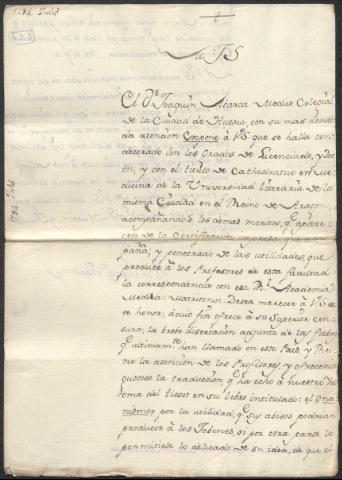 1784 Julio
M. P. S.
El D.r Joaquin Abarca Medico Colegial
de la Ciudad de Huesca, con su mas devida
atencion Expone à V.S. que se halla con
decorado con los Grados de Licenciado, y Doc
tor, y con el titulo de Cathedratico en Me
dicina de la Universidad literaria de la
misma Ciudad en el Reino de Aragon,
acompañandole los demas meritos, q.e apare
cen de la Certificacion impresa, que
paña; y penetrado de las utilidades, que
produce à los Profesores de esta facultad
la correspondencia con esa R.l Academia
Medica-Matritense: Desea merecer à V.S. es
te honor, à cuio fin ofrece à su Superior cen
sura, la brebe disertacion adjunta de las
q.e ultimam.te han llamado en este Pais, y Rei
no la atencion de los Profesores; y ofreceria
gustoso la traduccion q.e ha echo à nuestro Ydi
oma del tissot en su libro intitulado: el Ona
nismo; por la utilidad, q.e sus abisos podrian
producir à los Jobenes, si por otra parte lo
permitiese lo delicado de su idea, de que
1784. Julio